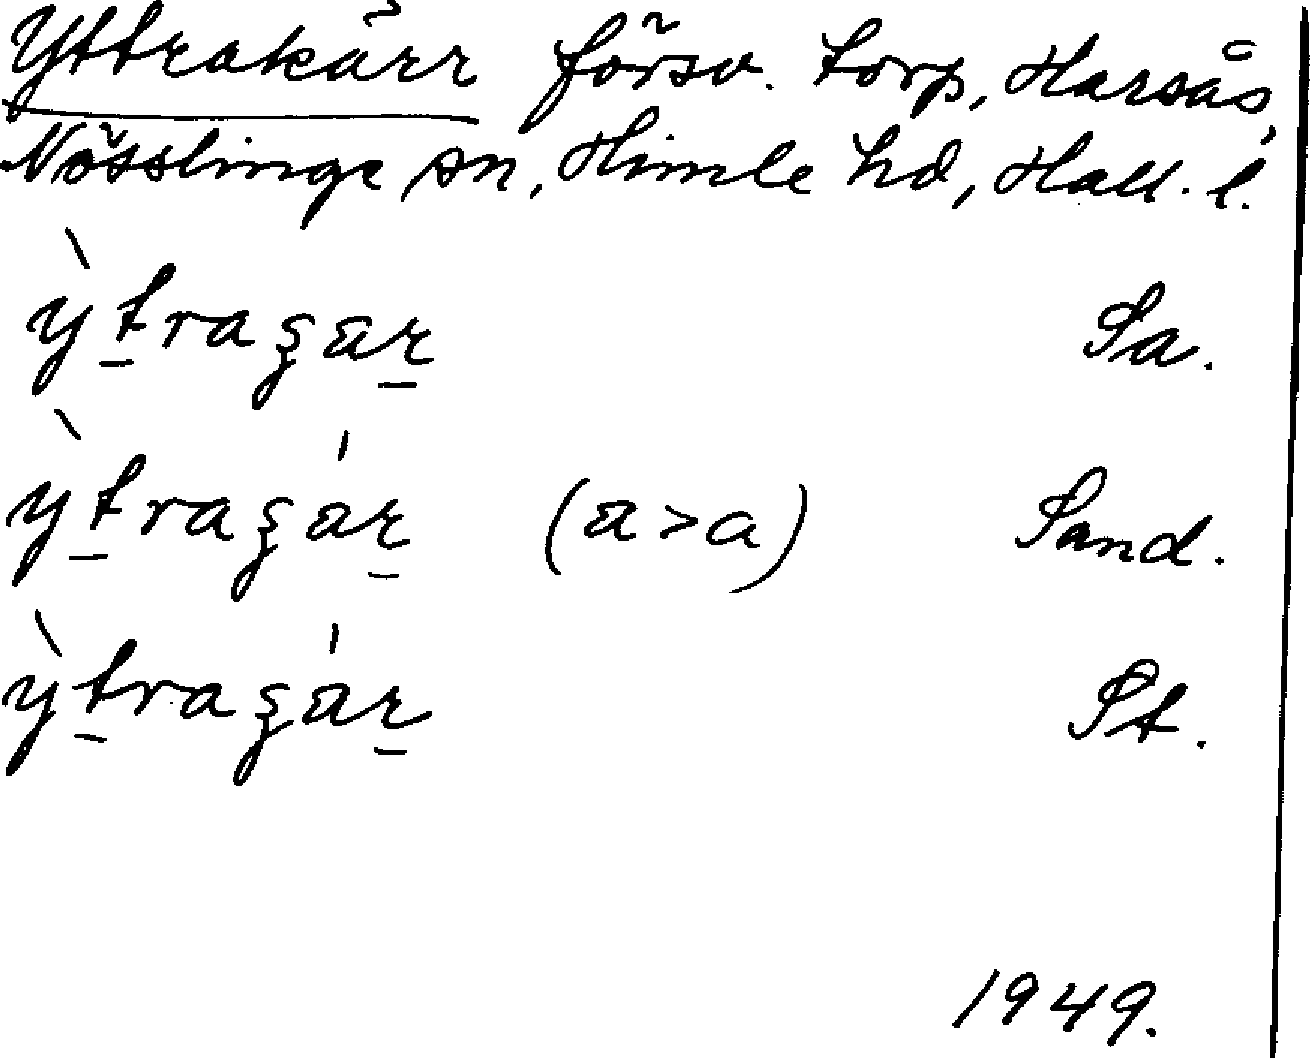 Yttrakärr försv. torp, Harsås,
Nösslinge sn, Himle hd, Hall. l.
ỳtragar Sa.
ỳtragár (a>a) Sand.
ỳtragár St.
1949.